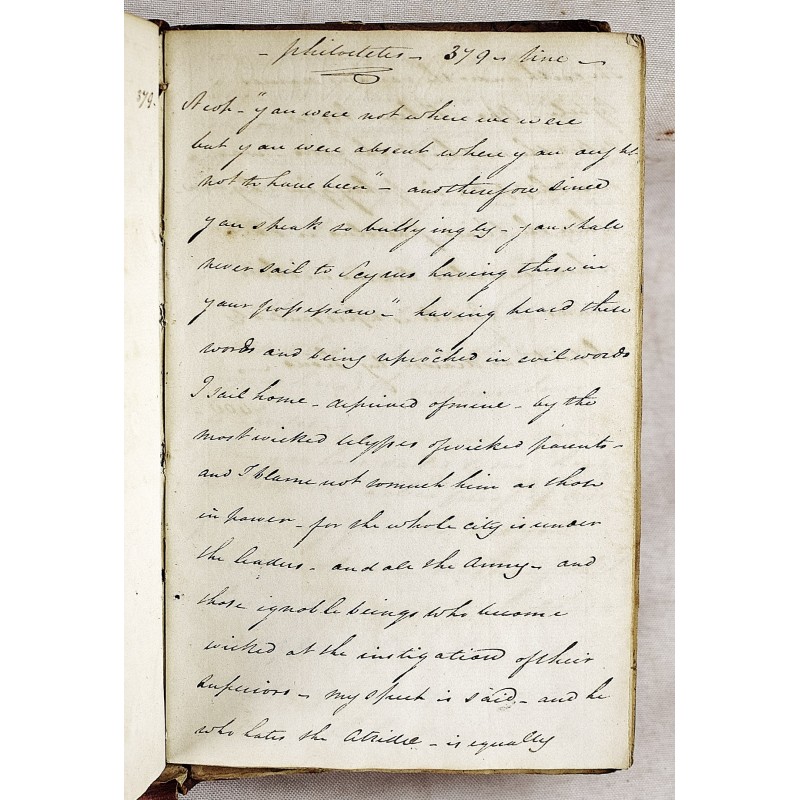 - philoctetes - 379 - line -
379.
Neop - "you were not where we were
but you were absent where you ought
not to have been" - and therefore since
you speak so bullyingly - you shall
never sail to Scyrus having these in
your possession" - having heard these
words and being reproached in evil words
I sail home - deprived of mine - by the
most wicked Ulysses of wicked parents -
and I blame not so much him as those
in power - for the whole city is under
the leaders - and all the Army - and
those ignoble beings who become
wicked at the instigation of their
superiors - my speech is said - and he
who hates the Atridæ - is equally